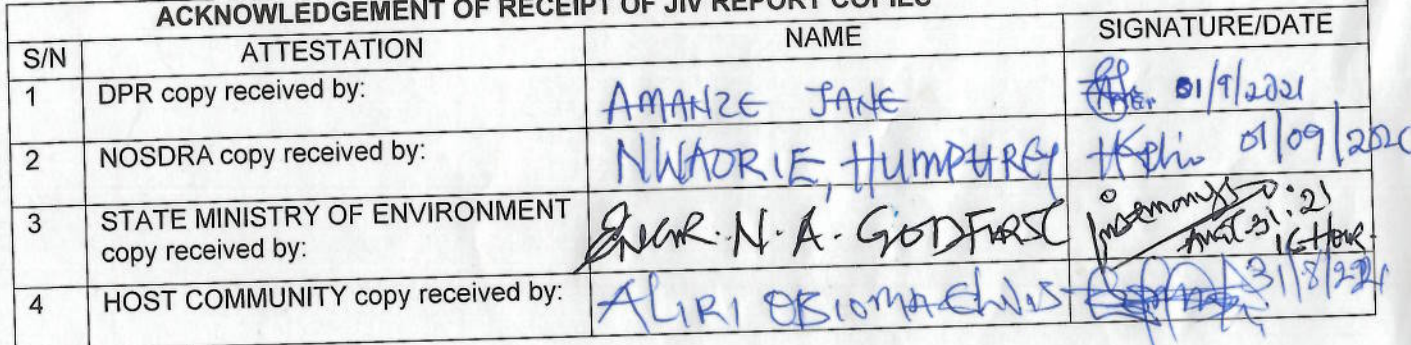 ACKNOWLEDGEMENT OF RECEIPT OF JIV REPORT COPIES
S/N ATTESTATION NAME SIGNATURE/DATE
1 DPR copy received by: AMANZE JANE 01/9/2021
2 NOSDRA copy received by: NWAORIE, HUMPHREY 01/09/202
3 STATE MINISTRY OF ENVIRONMENT ENGR. N. A. GODFIRST
copy received by: 31:21
4 HOST COMMUNITY copy received by: ALIRI OBIOMA 31/8/2021